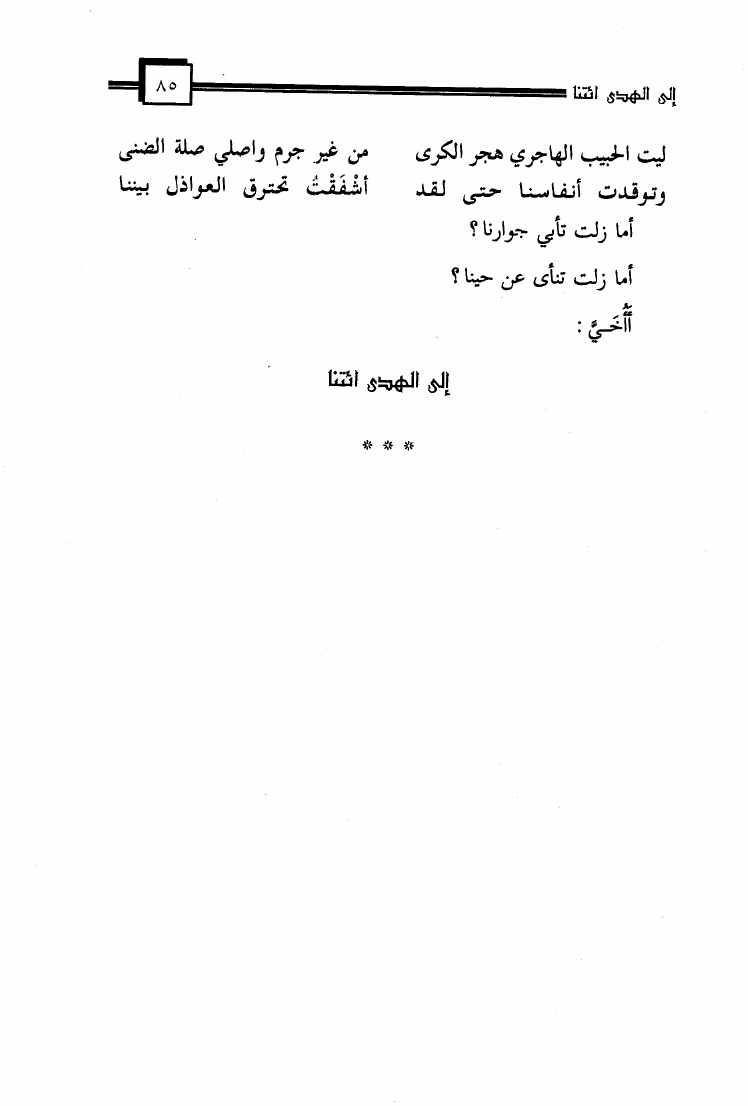 إلى الهدى ائتنا ٨٥
ليت الحبيب الهاجري هجر الكرى من غير جرم واصلي صلة الضنى
وتوقدت أنفاسنا حتى لقد أشْفَقْتُ تحترق العواذل بيننا
أما زلت تأبي جوارنا؟
أما زلت تنأى عن حينا؟
أَأُخَيَّ :
إلى الهدى ائتنا
* * *